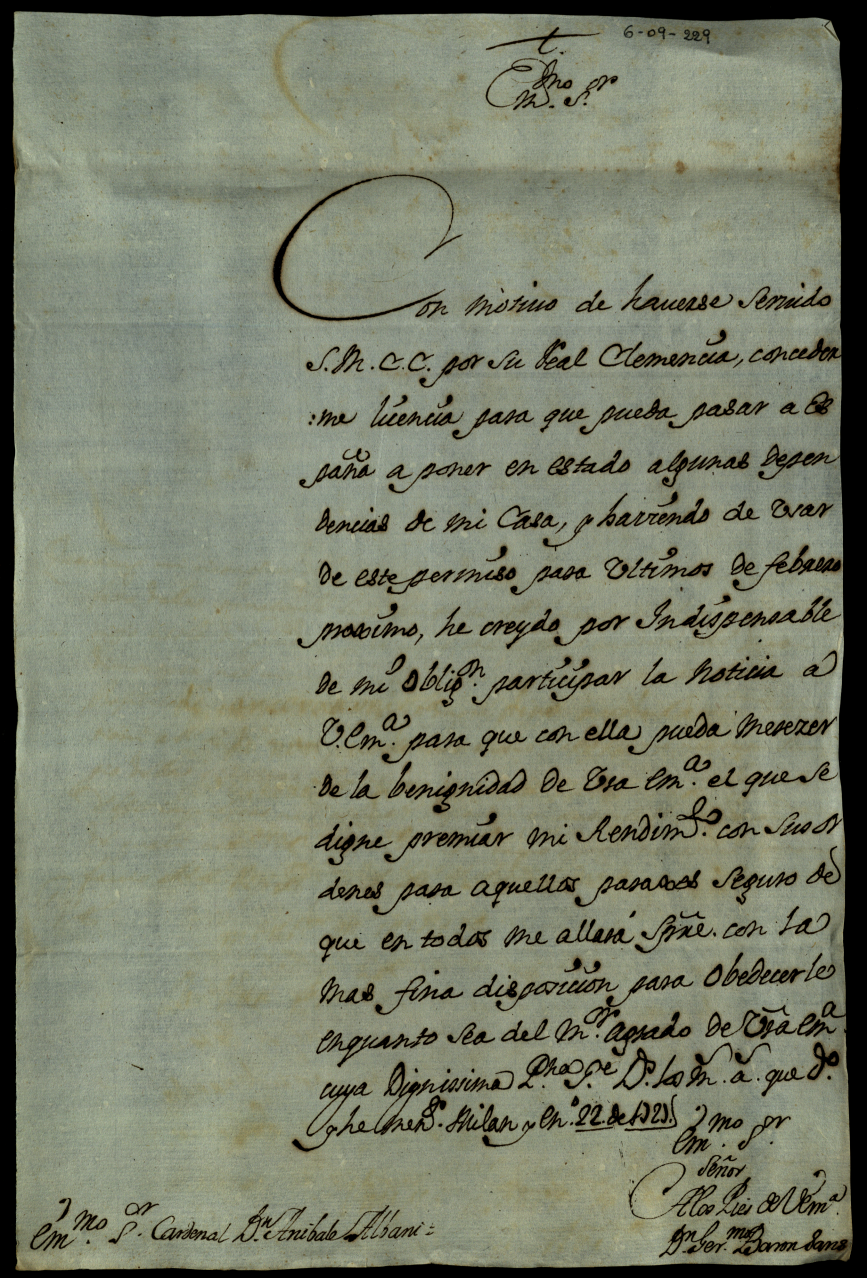 6-09-229
t.
Em.mo S.or
Con motivo de haverse servido
S.M.C.C. por su Real Clemencia, conceder
:me licencia para que pueda pasar a Es
paña a poner en estado algunas depen
dencias de mi Casa, y haviendo de Usar
de este permiso para Ultimos de febrero
proximo, he creydo por Indispensable
de mi Oblig.n participar la noticia a
V.Em.a para que con ella pueda merezer
de la benignidad de Vra Em.a el que se
digne premiar mi Rendim.to con sus or
denes para aquellos parages seguro de
que en todos me allará spre. con la
mas fina disposicion para obedecerle
enquanto sea del m.or agrado de Vra Em.a
cuya Dignissima P.na G.e D.s los m. a. que d.o
y he men.r Milan y En.o 22 de 1721
Em.mo S.or
Señor
A los Pies de V Em.a
D.n Ger.mo Baron
Em.mo S.or Cardenal D.n Anibale Albani =